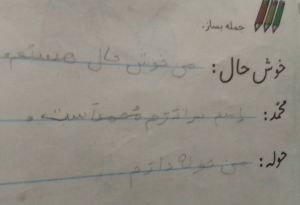 جمله بساز.
خوش حال: من خوش حال هستم.
محمّد: اسم برادرم محمد است.
حوله: من حوله دارم.